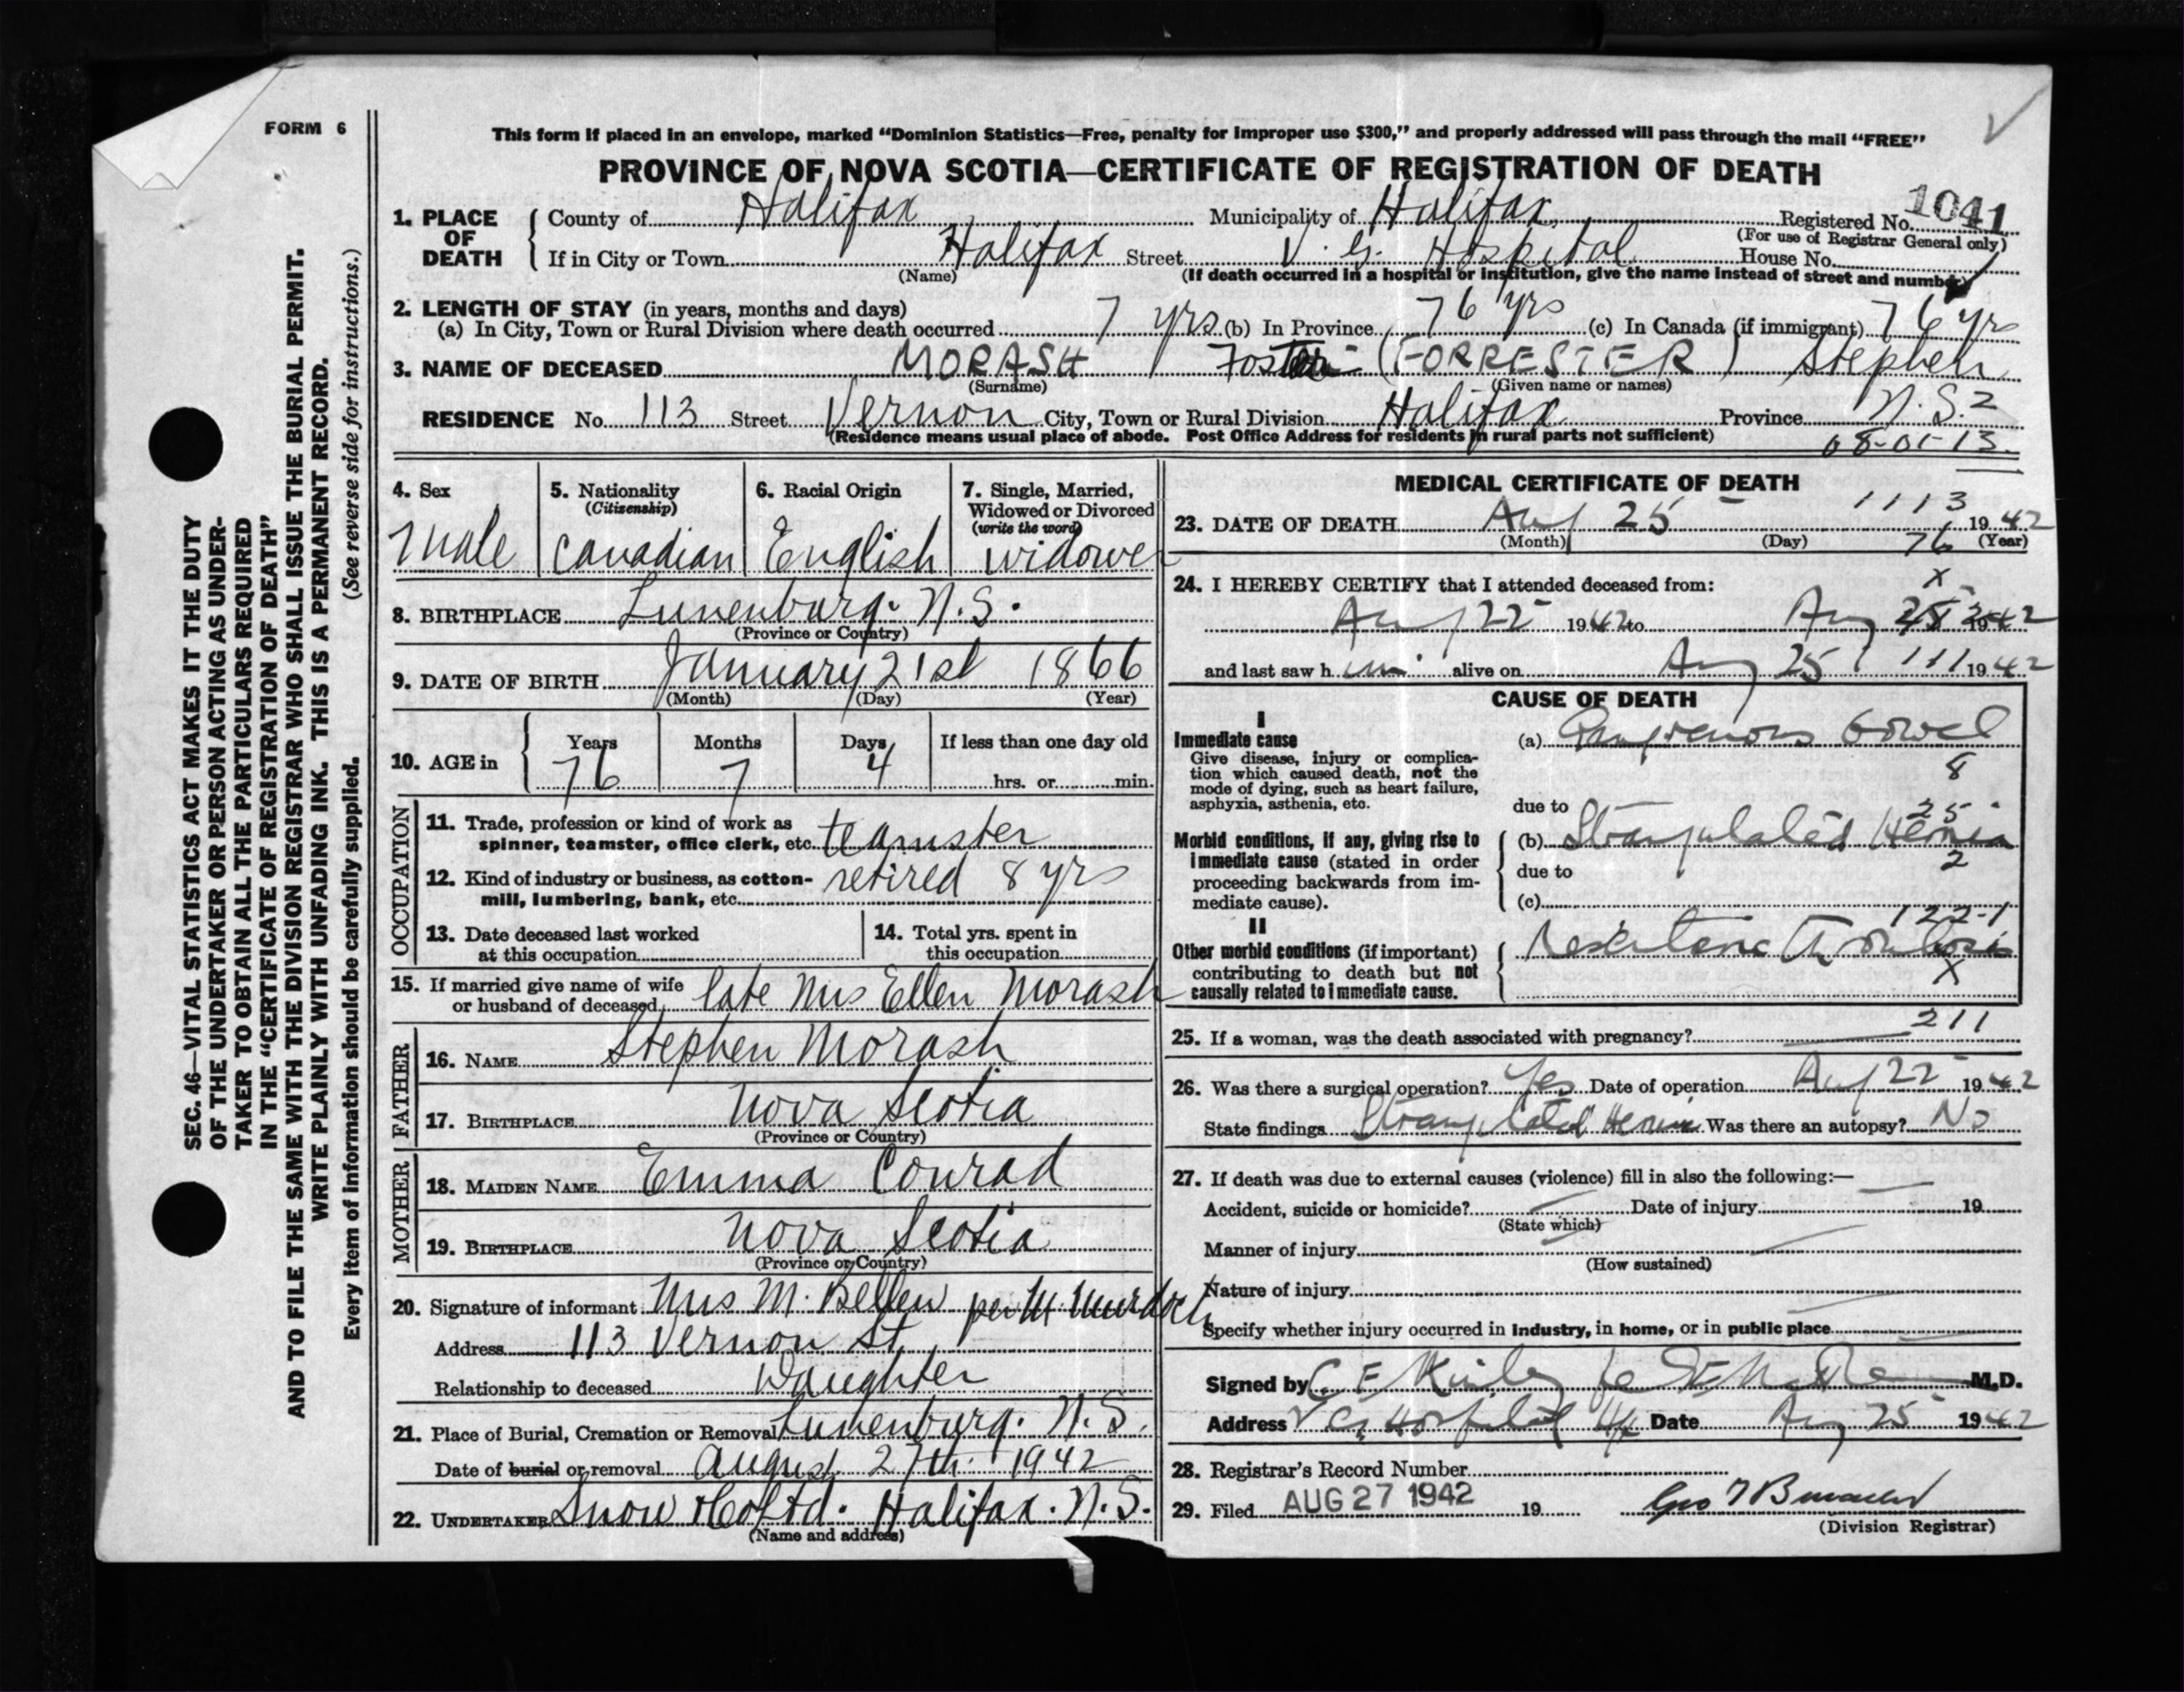 FORM 6
This form if placed in an envelope, marked “Dominion Statistics—Free, penalty for improper use $300,” and properly addressed will pass through the mail “FREE”
PROVINCE OF NOVA SCOTIA—CERTIFICATE OF REGISTRATION OF DEATH
1. PLACE OF DEATH
County of Halifax Municipality of Halifax Registered No. 1041
(For use of Registrar General only)
If in City or Town Halifax Street V. G. Hospital House No.
(Name) (If death occurred in a hospital or institution, give the name instead of street and number)
2. LENGTH OF STAY (in years, months and days)
(a) In City, Town or Rural Division where death occurred 7 yrs (b) In Province 76 yrs (c) In Canada (if immigrant) 76 yrs
3. NAME OF DECEASED MORASH Foster (FORRESTER) Stephen
(Surname) (Given name or names)
RESIDENCE No. 113 Street Vernon City, Town or Rural Division Halifax Province N.S. 2
(Residence means usual place of abode. Post Office Address for residents in rural parts not sufficient) 08-01-13
4. Sex
Male
5. Nationality
(Citizenship)
Canadian
6. Racial Origin
English
7. Single, Married,
Widowed or Divorced
(write the word)
widower
8. BIRTHPLACE Lunenburg. N.S.
(Province or Country)
9. DATE OF BIRTH January 21st 1866
(Month) (Day) (Year)
10. AGE in
Years Months Days If less than one day old
76 7 4 hrs. or min.
OCCUPATION
11. Trade, profession or kind of work as
spinner, teamster, office clerk, etc. teamster
12. Kind of industry or business, as cotton-
mill, lumbering, bank, etc. retired 8 yrs
13. Date deceased last worked
at this occupation
14. Total yrs. spent in
this occupation
15. If married give name of wife
or husband of deceased late Mrs Ellen Morash
FATHER
16. NAME Stephen Morash
17. BIRTHPLACE Nova Scotia
(Province or Country)
MOTHER
18. MAIDEN NAME Emma Conrad
19. BIRTHPLACE Nova Scotia
(Province or Country)
20. Signature of informant Mrs M. Bellew per M Murdoch
Address 113 Vernon St.
Relationship to deceased Daughter
21. Place of Burial, Cremation or Removal Lunenburg. N.S.
Date of burial or removal August 27th 1942
22. UNDERTAKER Snow & Co Ltd. Halifax. N.S.
(Name and address)
MEDICAL CERTIFICATE OF DEATH
1113
23. DATE OF DEATH Aug 25 1942
(Month) (Day) (Year)
76
24. I HEREBY CERTIFY that I attended deceased from:
X
Aug 22 1942 to Aug 25 1942
and last saw him alive on Aug 25 111 1942
CAUSE OF DEATH
I
Immediate cause
Give disease, injury or complica-
tion which caused death, not the
mode of dying, such as heart failure,
asphyxia, asthenia, etc.
(a) Gangrenous bowel
8
due to
25
Morbid conditions, if any, giving rise to
immediate cause (stated in order
proceeding backwards from im-
mediate cause).
(b) Strangulated Hernia
2
due to
(c)
122-1
II
Other morbid conditions (if important)
contributing to death but not
causally related to immediate cause.
Mesenteric Thrombosis
X
211
25. If a woman, was the death associated with pregnancy?
26. Was there a surgical operation? Yes Date of operation Aug 22 1942
State findings Strangulated Hernia Was there an autopsy? No
27. If death was due to external causes (violence) fill in also the following:—
Accident, suicide or homicide? Date of injury 19
(State which)
Manner of injury
(How sustained)
Nature of injury
Specify whether injury occurred in Industry, in home, or in public place
Signed by C E Kinley M.D.
Address V G Hospital Hfx Date Aug 25 1942
28. Registrar's Record Number
29. Filed AUG 27 1942 19 Geo
(Division Registrar)
SEC. 46—VITAL STATISTICS ACT MAKES IT THE DUTY
OF THE UNDERTAKER OR PERSON ACTING AS UNDER-
TAKER TO OBTAIN ALL THE PARTICULARS REQUIRED
IN THE “CERTIFICATE OF REGISTRATION OF DEATH”
AND TO FILE THE SAME WITH THE DIVISION REGISTRAR WHO SHALL ISSUE THE BURIAL PERMIT.
WRITE PLAINLY WITH UNFADING INK. THIS IS A PERMANENT RECORD.
Every item of information should be carefully supplied. (See reverse side for instructions.)